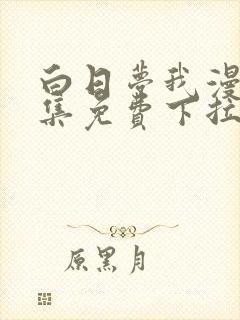 白日梦我漫
集免费下拉
原黑月